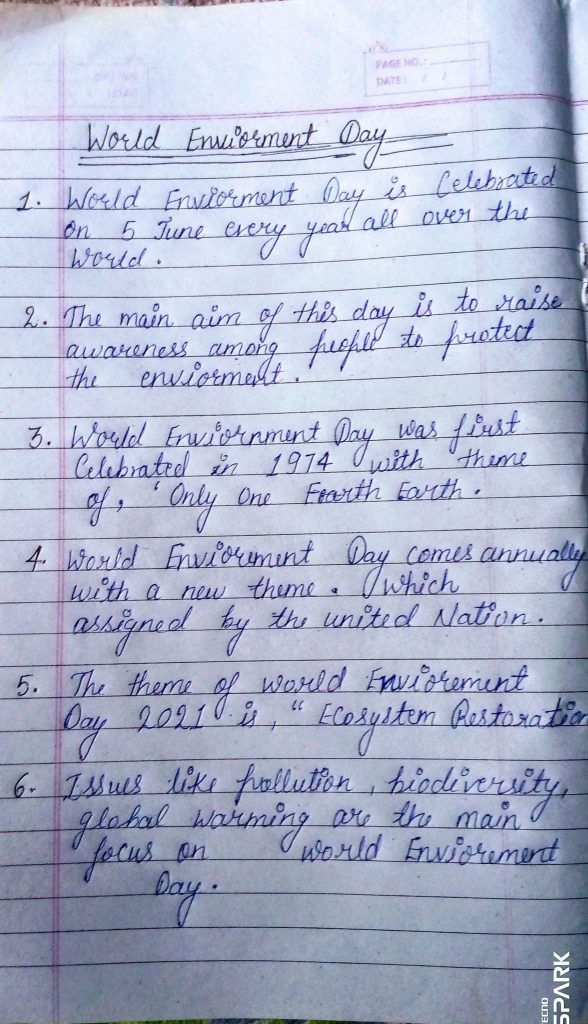 PAGE NO.:
DATE: / /
World Enviorment Day
1. World Enviorment Day is Celebrated
on 5 June every year all over the
World.
2. The main aim of this day is to raise
awareness among people to protect
the enviorment.
3. World Enviornment Day was first
Celebrated in 1974 with theme
of, ' Only One Fearth Earth.
4. World Enviorment Day comes annually
with a new theme. which
assigned by the united Nation.
5. The theme of world Enviorement
Day 2021 is, " Ecosystem Restoration
6. Issues like pollution, biodiversity,
global warming are the main
focus on world Enviorement
Day.
TECNO
SPARK